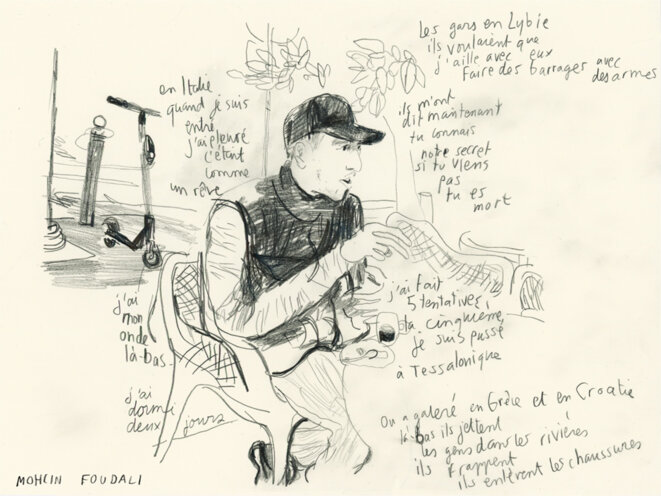 Les gars en Lybie
ils voulaient que
j'aille avec eux
faire des barrages avec
des armes
en Italie
quand je suis
entré
j'ai pleuré
c'était
comme
un rêve
ils m'ont
dit maintenant
tu connais
notre secret
si tu viens
pas
tu es
mort
j'ai
mon
oncle
là-bas
j'ai fait
5 tentatives,
la cinquième
je suis passé
à Tessalonique
j'ai
dormi
deux jours
On a galeré en Grèce et en Croatie
là-bas ils jettent
les gens dans les rivières
ils frappent
ils enlèvent les chaussures
MOHCIN FOUDALI